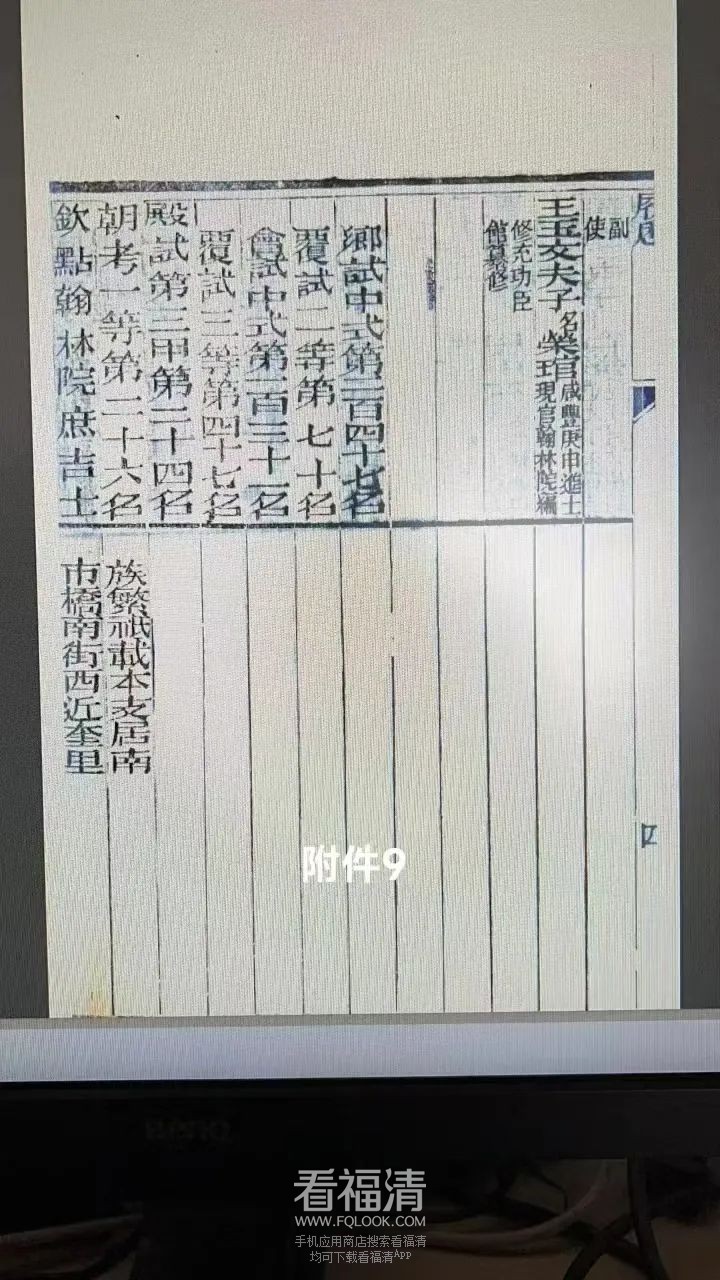 副
使
王玉文夫子名榮琯咸豐庚申進士
現官翰林院編
修充功臣
館纂修
鄉試中式第二百四十七名
覆試二等第七十名
會試中式第一百三十一名
覆試三等第四十七名
殿試第三甲第二十四名
朝考一等第二十六名
欽點翰林院庶吉士
族繁祇載本支居南
市橋南街西近奎里
四
附件9
看福清
WWW.FQLOOK.COM
手机应用商店搜索看福清
均可下载看福清App